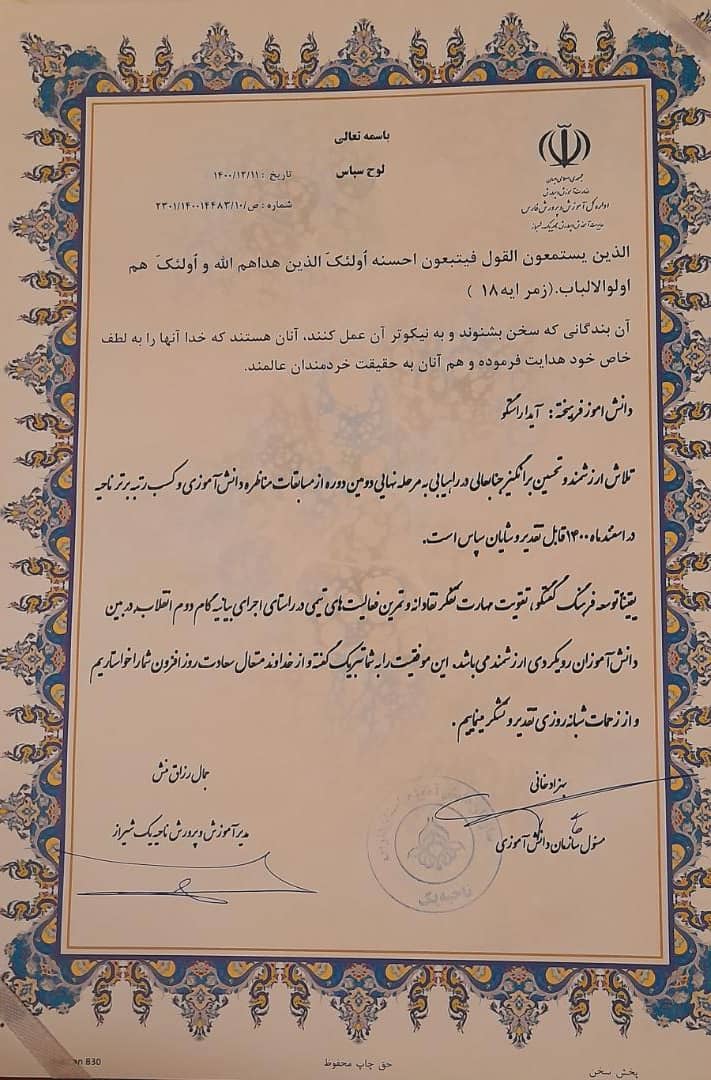 باسمه تعالی
لوح سپاس
تاریخ : ۱۴۰۰/۱۲/۱۱
شماره : ص/۲۳۰۱/۱۴۰۰۱۴۴۸۳/۱۰
جمهوری اسلامی ایران
وزارت آموزش و پرورش
اداره کل آموزش و پرورش فارس
مدیریت آموزش و پرورش ناحیه یک شیراز
الذین یستمعون القول فیتبعون احسنه أولئکَ الذین هداهم الله و أولئکَ هم
اولوالالباب.(زمر ایه ۱۸ )
آن بندگانی که سخن بشنوند و به نیکوتر آن عمل کنند، آنان هستند که خدا آنها را به لطف
خاص خود هدایت فرموده و هم آنان به حقیقت خردمندان عالمند.
دانش اموز فرهیخته : آیدا راستگو
تلاش ارزشمند و تحسین برانگیز جنابعالی در راهیابی به مرحله نهایی دومین دوره از مسابقات مناظره دانش‌آموزی و کسب رتبه برتر ناحیه
در اسفند ماه ۱۴۰۰ قابل تقدیر و شایان سپاس است.
یقینا توسعه فرهنگ گفتگو، تقویت مهارت تفکر نقادانه و تمرین فعالیت‌های تیمی در راستای اجرای بیانیه گام دوم انقلاب، در بین
دانش‌آموزان رویکردی ارزشمند می باشد. این موفقیت را به شما تبریک گفته و از خداوند متعال سعادت روز افزون شما را خواستاریم
و از زحمات شبانه روزی تقدیر و تشکر می‌نماییم .
بهزاد خانی
مسئول سازمان دانش آموزی
جمال رزاق منش
مدیر آموزش و پرورش ناحیه یک شیراز
ناحیه یک
B30
حق چاپ محفوظ
پخش سخن